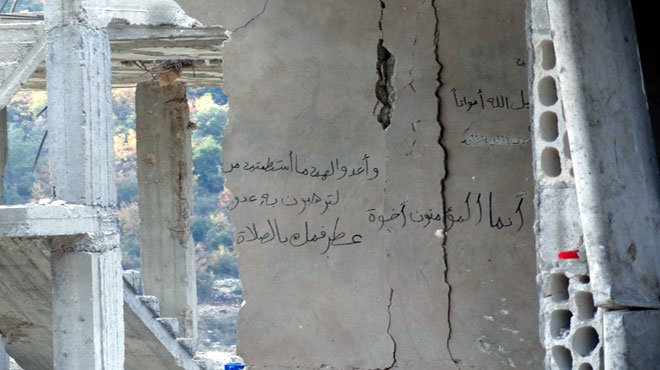 يل الله أمواتاً
وأعدوا لهم ما أستطعتم من
لترهبون به عدو
عطر فمك بالصلاة
أنما المؤمنون أخوة